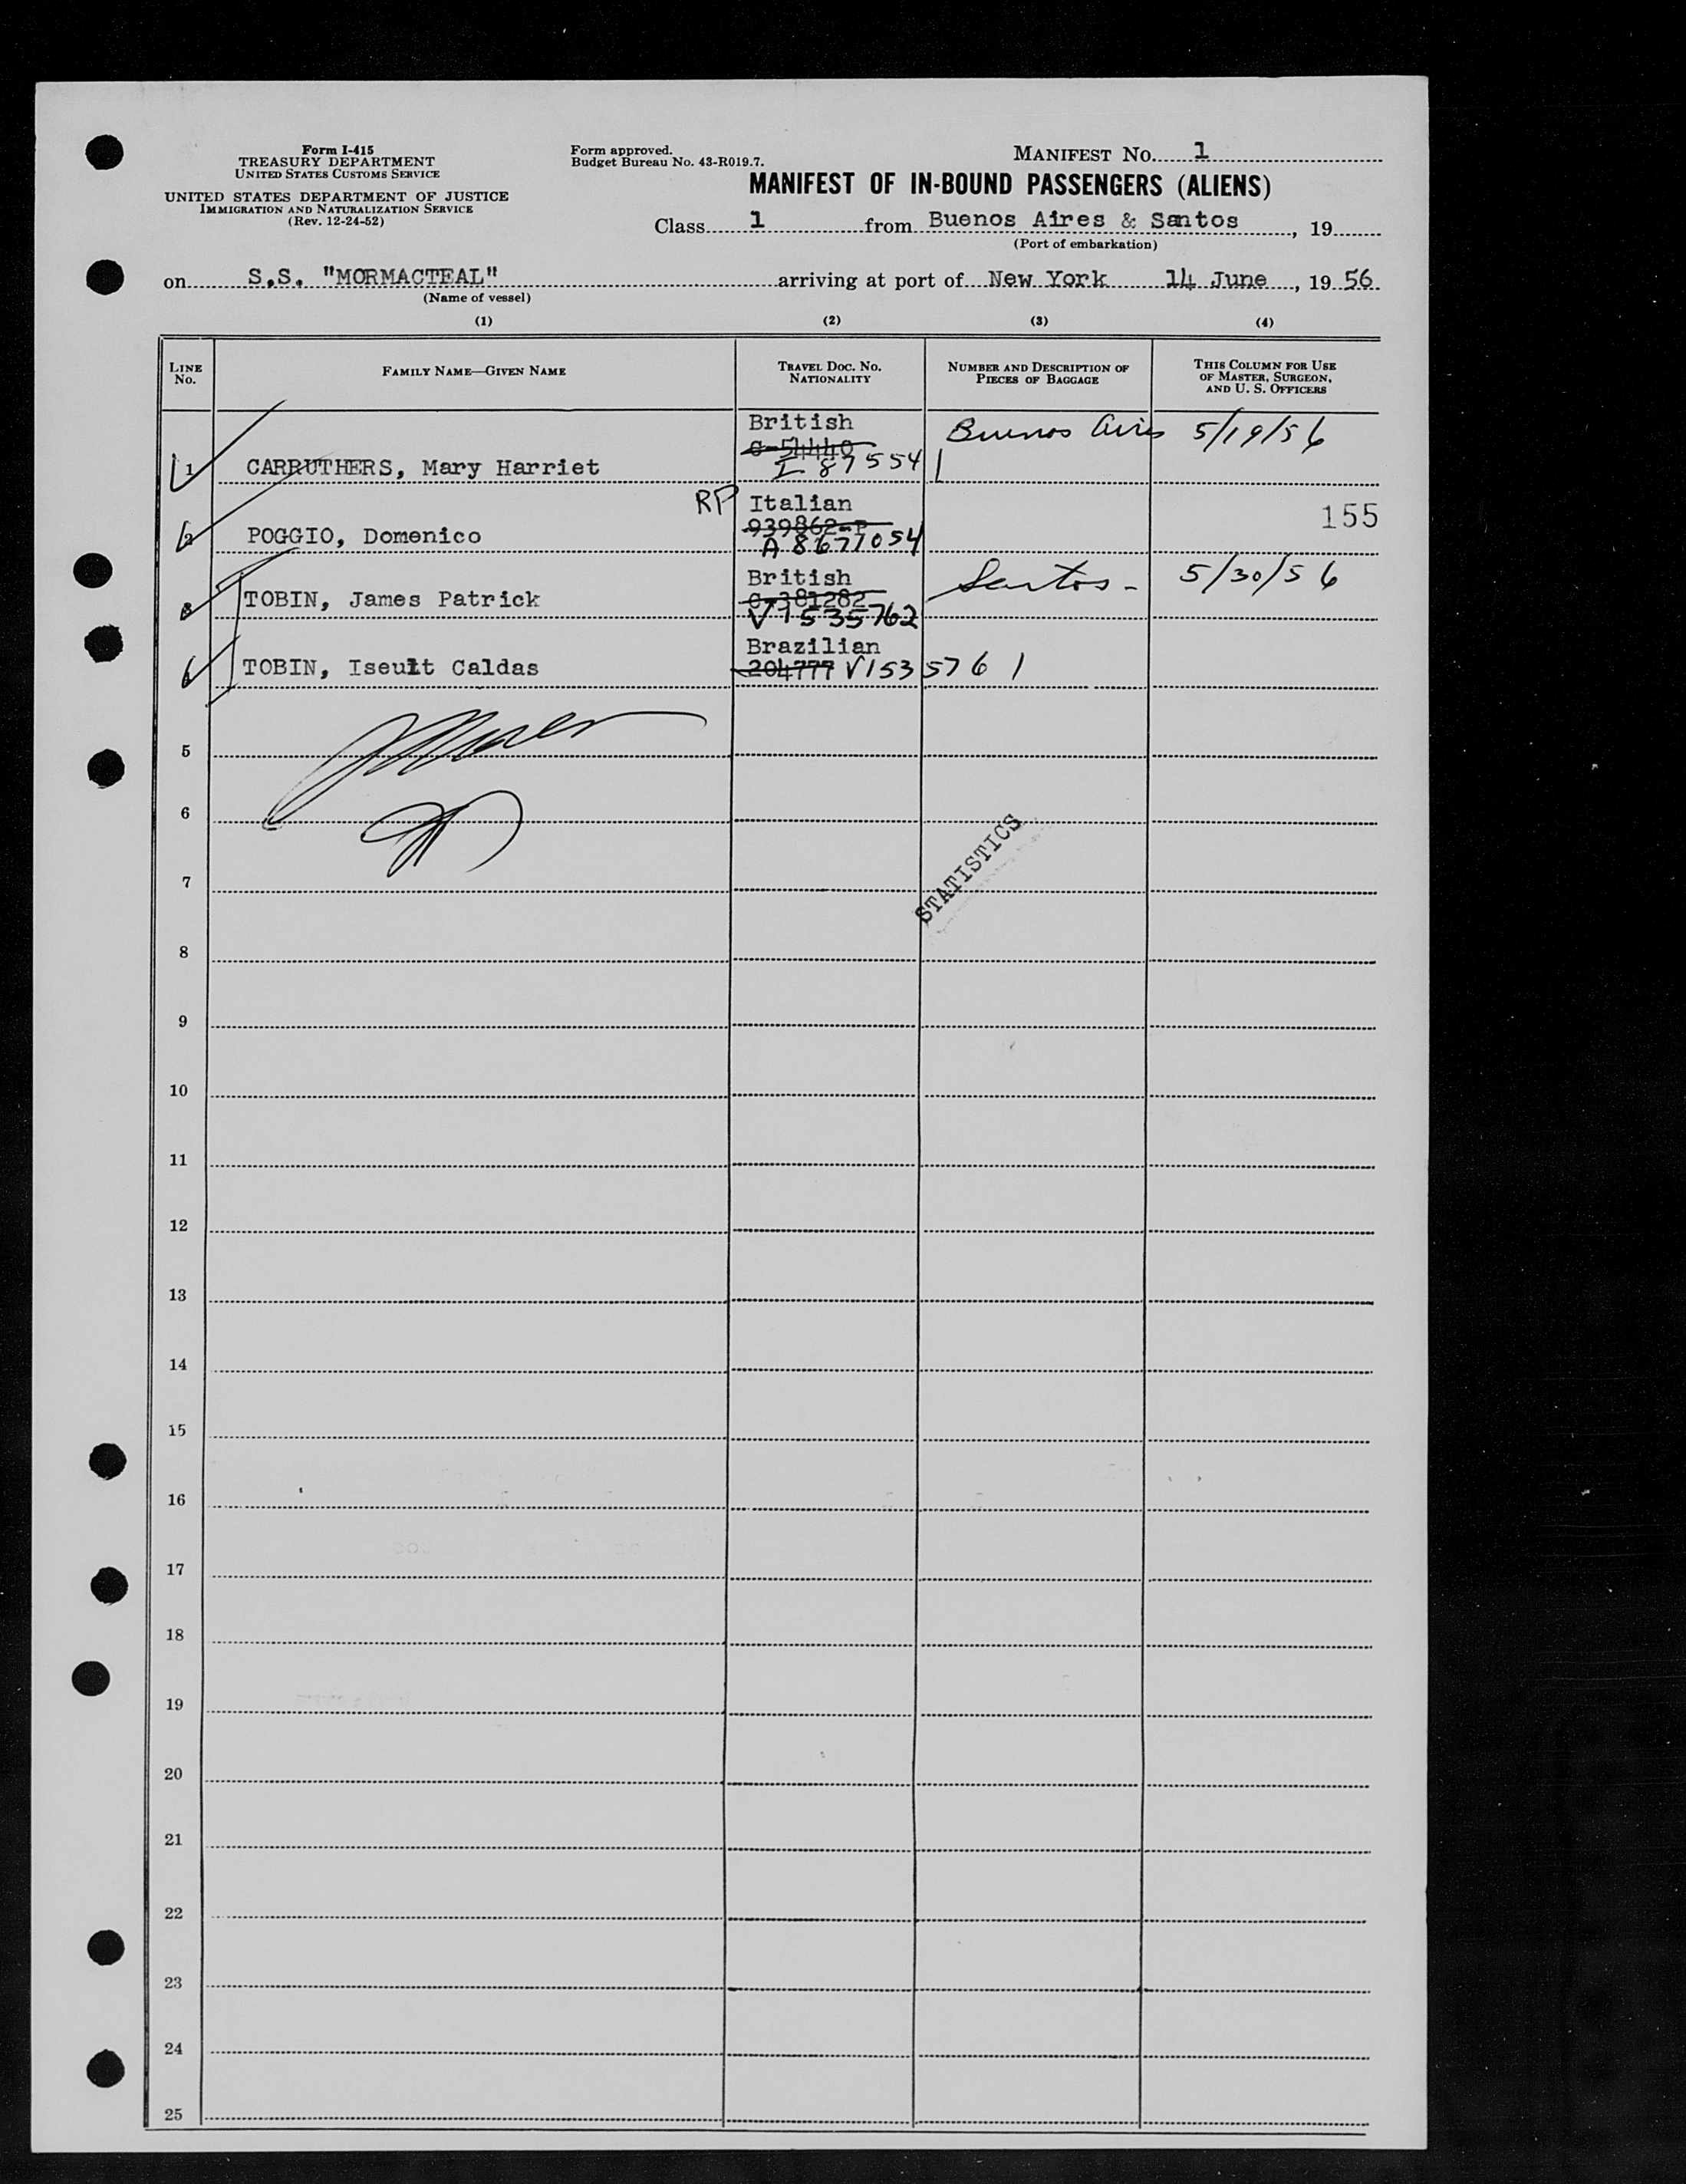 Form I-415
TREASURY DEPARTMENT
UNITED STATES CUSTOMS SERVICE
UNITED STATES DEPARTMENT OF JUSTICE
IMMIGRATION AND NATURALIZATION SERVICE
(Rev. 12-24-52)
Form approved.
Budget Bureau No. 43-R019.7.
MANIFEST NO. 1
MANIFEST OF IN-BOUND PASSENGERS (ALIENS)
Class 1 from Buenos Aires & Santos, 19
(Port of embarkation)
on S.S. "MORMACTEAL" arriving at port of New York 14 June, 19 56
(Name of vessel)
(1) (2) (3) (4)
LINE NO. FAMILY NAME—GIVEN NAME TRAVEL DOC. NO. NATIONALITY NUMBER AND DESCRIPTION OF PIECES OF BAGGAGE THIS COLUMN FOR USE OF MASTER, SURGEON, AND U. S. OFFICERS
British Buenos Aires 5/19/56
C-54440
1 CARRUTHERS, Mary Harriet I 875541
RP Italian 155
939862-P
2 POGGIO, Domenico A 8677054
British Santos - 5/30/56
C-381282
3 TOBIN, James Patrick V 1535762
Brazilian
4 TOBIN, Iseult Caldas 204777 V1535761
5
6
STATISTICS
7
8
9
10
11
12
13
14
15
16
17
18
19
20
21
22
23
24
25